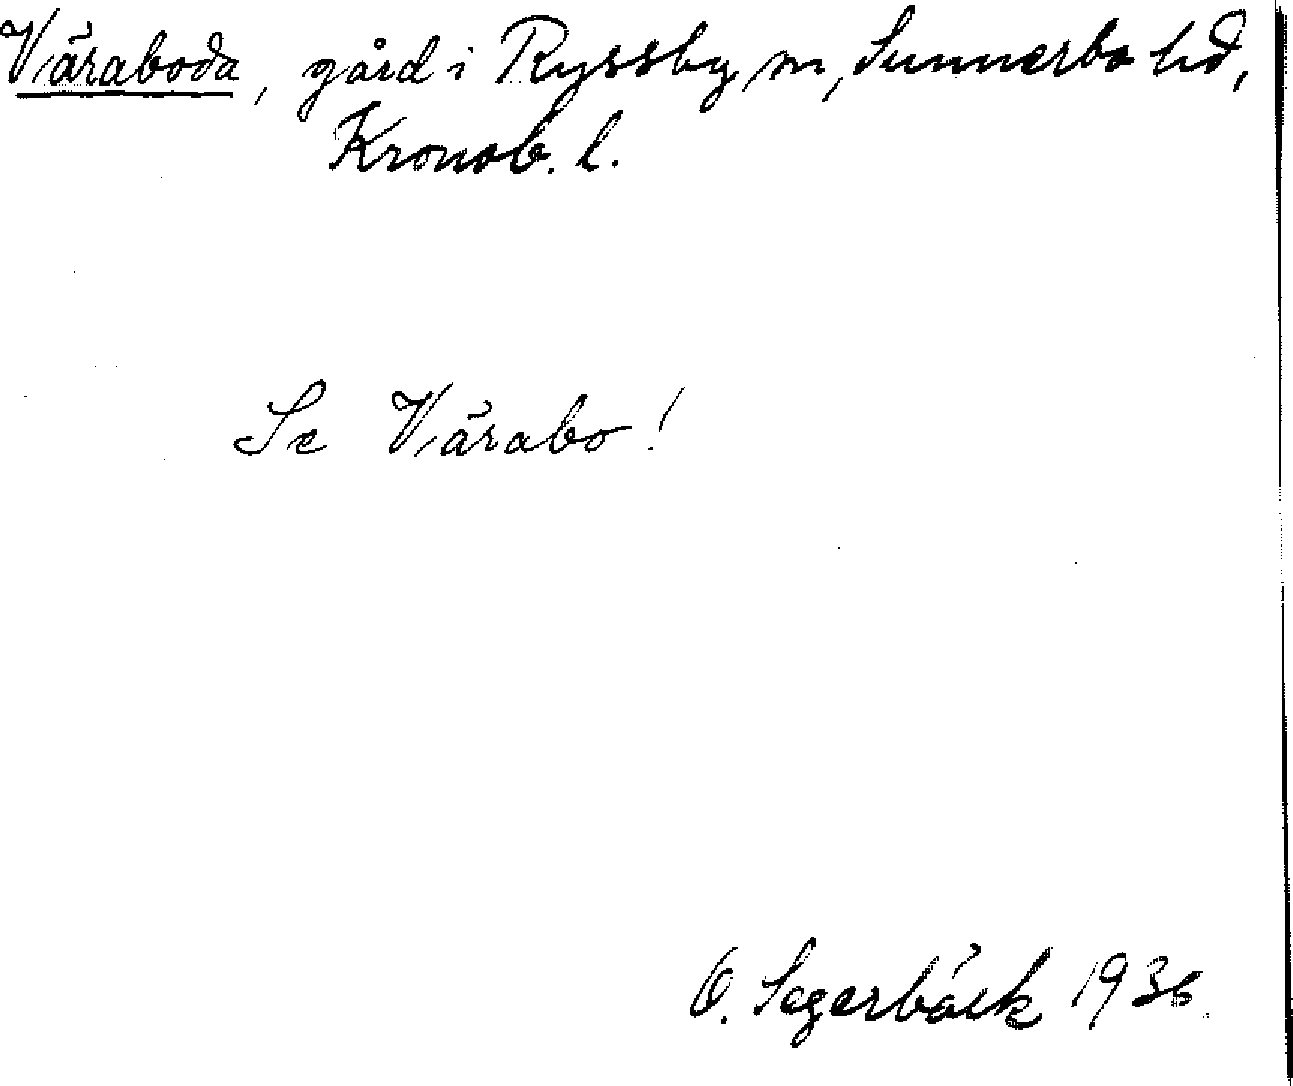 Väraboda, gård i Ryssby sn, Sunnerbo hd,
Kronob. l.
Se Värabo!
O. Segerbäck 1936